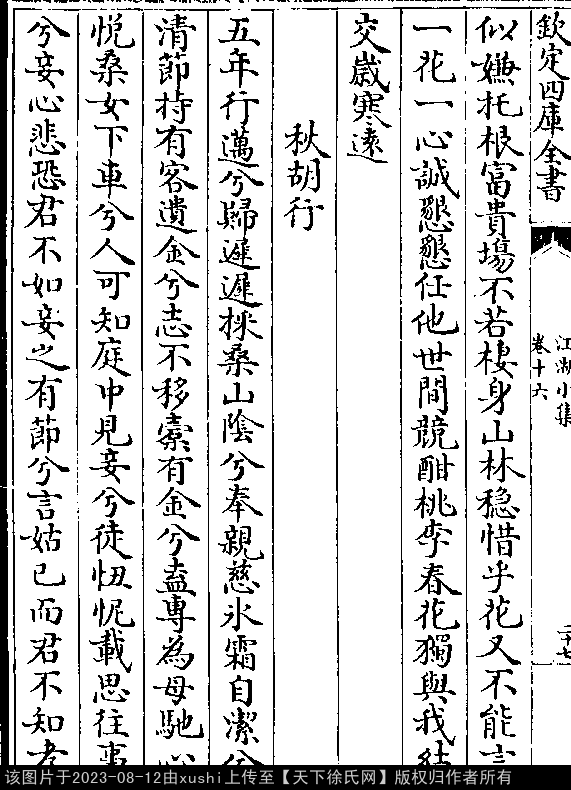 欽定四庫全書
江湖小集
卷十六
二十七
似嫌托根富貴場不若棲身山林穏惜乎花又不能言
一花一心誠懇懇任他世間競酣桃李春花獨與我結
交歳寒逺
秋胡行
五年行邁兮歸遲遲採桑山陰兮奉親慈氷霜自潔兮
清節持有客遺金兮志不移橐有金兮盍專為母馳心
悦桑女下車兮人可知庭中見妾兮徒忸怩載思往事
兮妾心悲恐君不如妾之有節兮言姑已而君不知孝
该图片于2023-08-12由xushi上传至【天下徐氏网】版权归作者所有